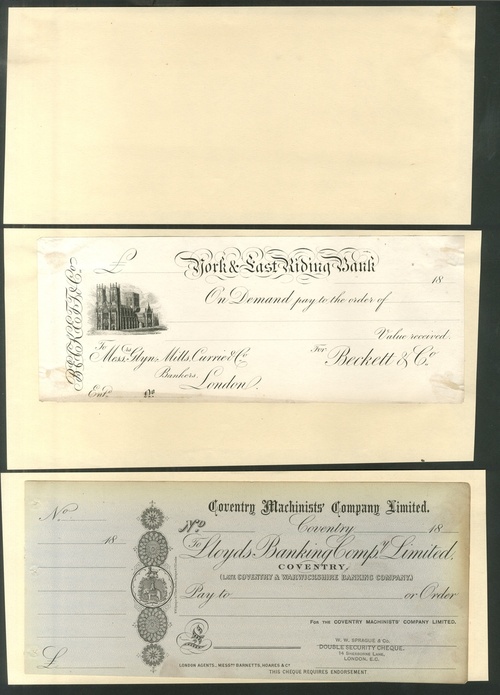 £
York & East Riding Bank
18
On Demand pay to the order of
BECKETT & Co.
Value received.
To Messrs. Glyn, Mills, Currie & Co.
For Beckett & Co.
Bankers,
London.
Entd.
No.
Coventry Machinists' Company Limited.
No.
No.
Coventry 18
18
To Lloyds Banking Compy. Limited,
COVENTRY,
(LATE COVENTRY & WARWICKSHIRE BANKING COMPANY.)
Pay to or Order
FOR THE COVENTRY MACHINISTS' COMPANY LIMITED,
W. W. SPRAGUE & Co.
DOUBLE SECURITY CHEQUE,
LONDON, E.C.
£
LONDON AGENTS, MESSRS. BARNETTS, HOARES & Co.
THIS CHEQUE REQUIRES ENDORSEMENT